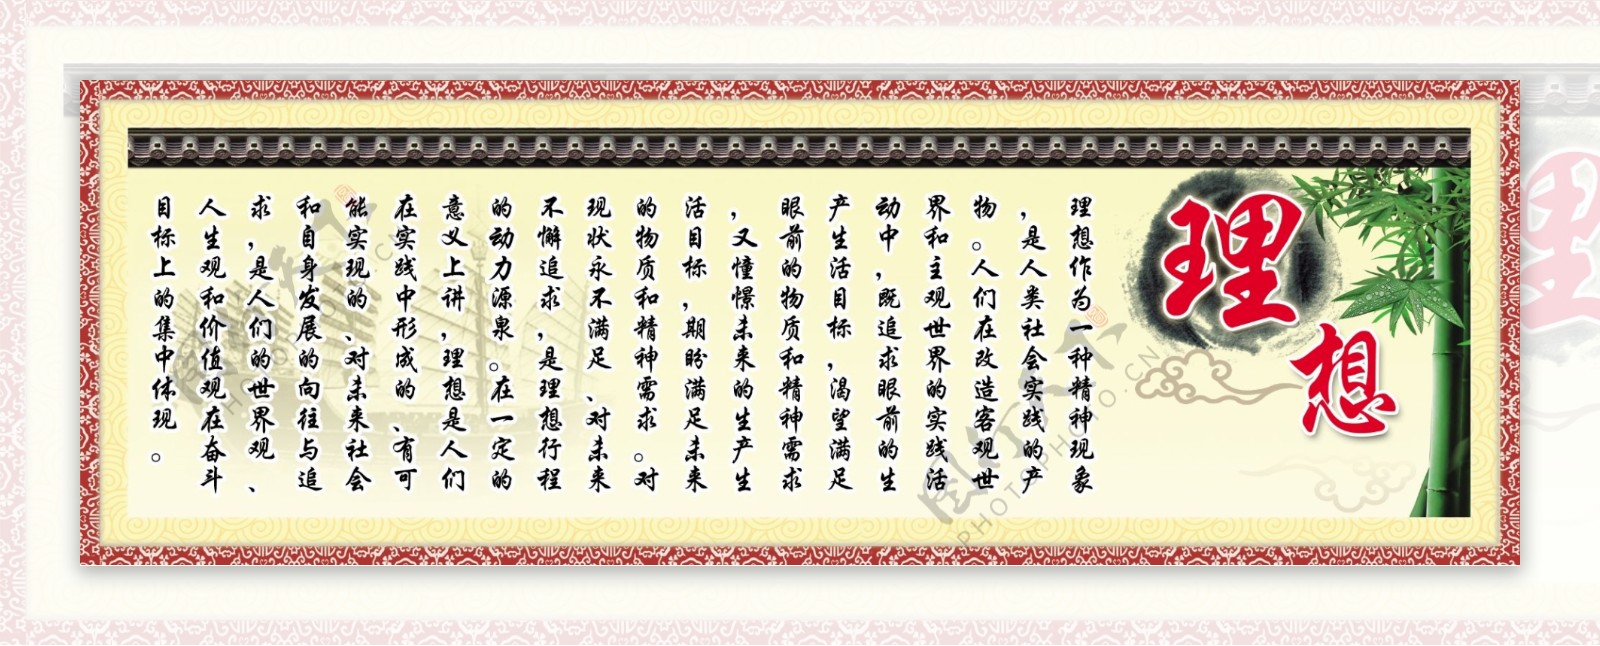 理想
理想作为一种精神现象
，是人类社会实践的产
物。人们在改造客观世
界和主观世界的实践活
动中，既追求眼前的生
产生活目标，渴望满足
眼前的物质和精神需求
，又憧憬未来的生产生
活目标，期盼满足未来
的物质和精神需求。对
现状永不满足、对未来
不懈追求，是理想行程
的动力源泉。在一定的
意义上讲，理想是人们
在实践中形成的、有可
能实现的、对未来社会
和自身发展的向往与追
求，是人们的世界观、
人生观和价值观在奋斗
目标上的集中体现。